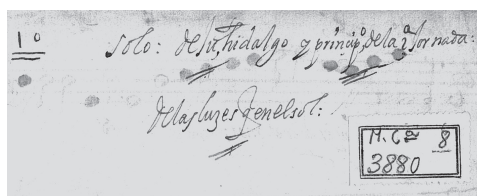 1º
Solo: de Juº hidalgo y principº, de la 1ª Jornada:
de las luzes q en el sol:
M.Cª 8
3880